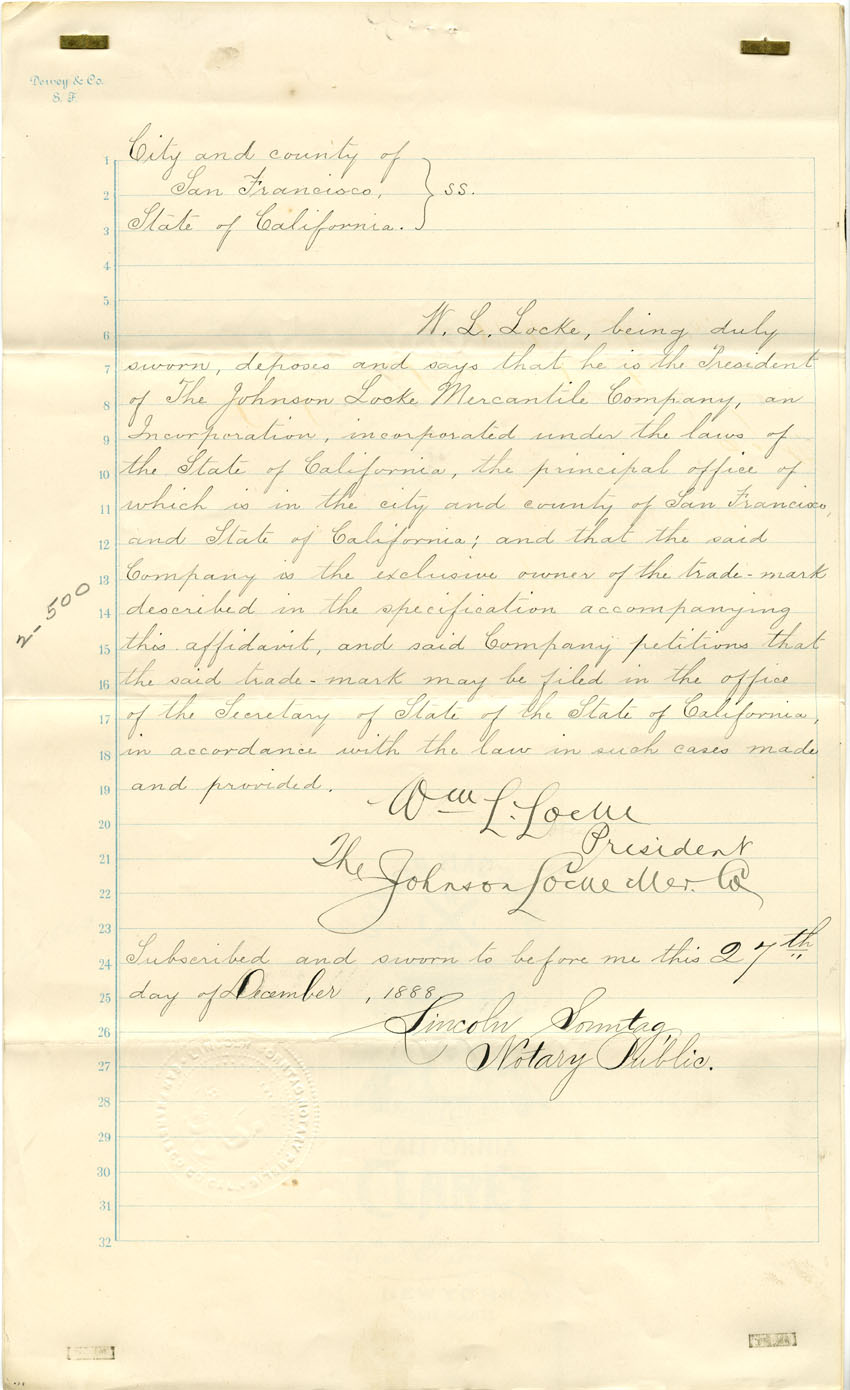 Dewey & Co.
S. F.
1 City and county of
2 San Francisco, } ss.
3 State of California.
4
5
6 W. L. Locke, being duly
7 sworn, deposes and says that he is the President
8 of The Johnson Locke Mercantile Company, an
9 Incorporation, incorporated under the laws of
10 the State of California, the principal office of
11 which is in the city and county of San Francisco,
12 and State of California; and that the said
13 Company is the exclusive owner of the trade-mark
2-500
14 described in the specification accompanying
15 this affidavit, and said Company petitions that
16 the said trade-mark may be filed in the office
17 of the Secretary of State of the State of California,
18 in accordance with the law in such cases made
19 and provided.
20 Wm L. Locke
21 President
22 The Johnson Locke Mer. Co
23
24 Subscribed and sworn to before me this 27th
25 day of December, 1888
26 Lincoln Sonntag
27 Notary Public.
28
29
30
31
32
CLARET